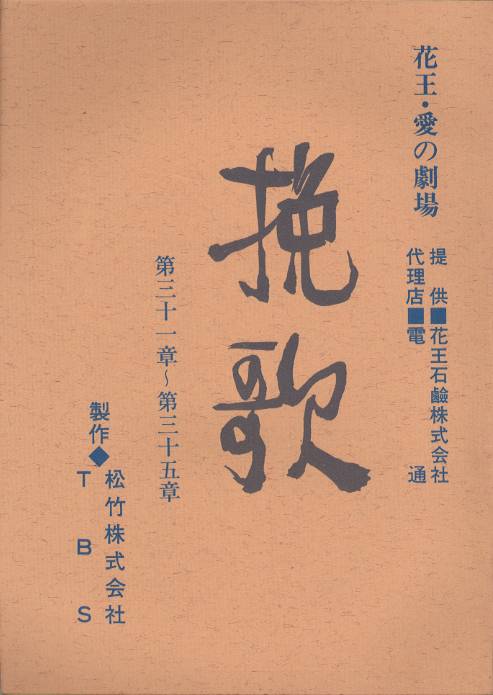 花王・愛の劇場
提供■花王石鹼株式会社
代理店■電通
挽歌
第三十一章~第三十五章
製作◆松竹株式会社
TBS